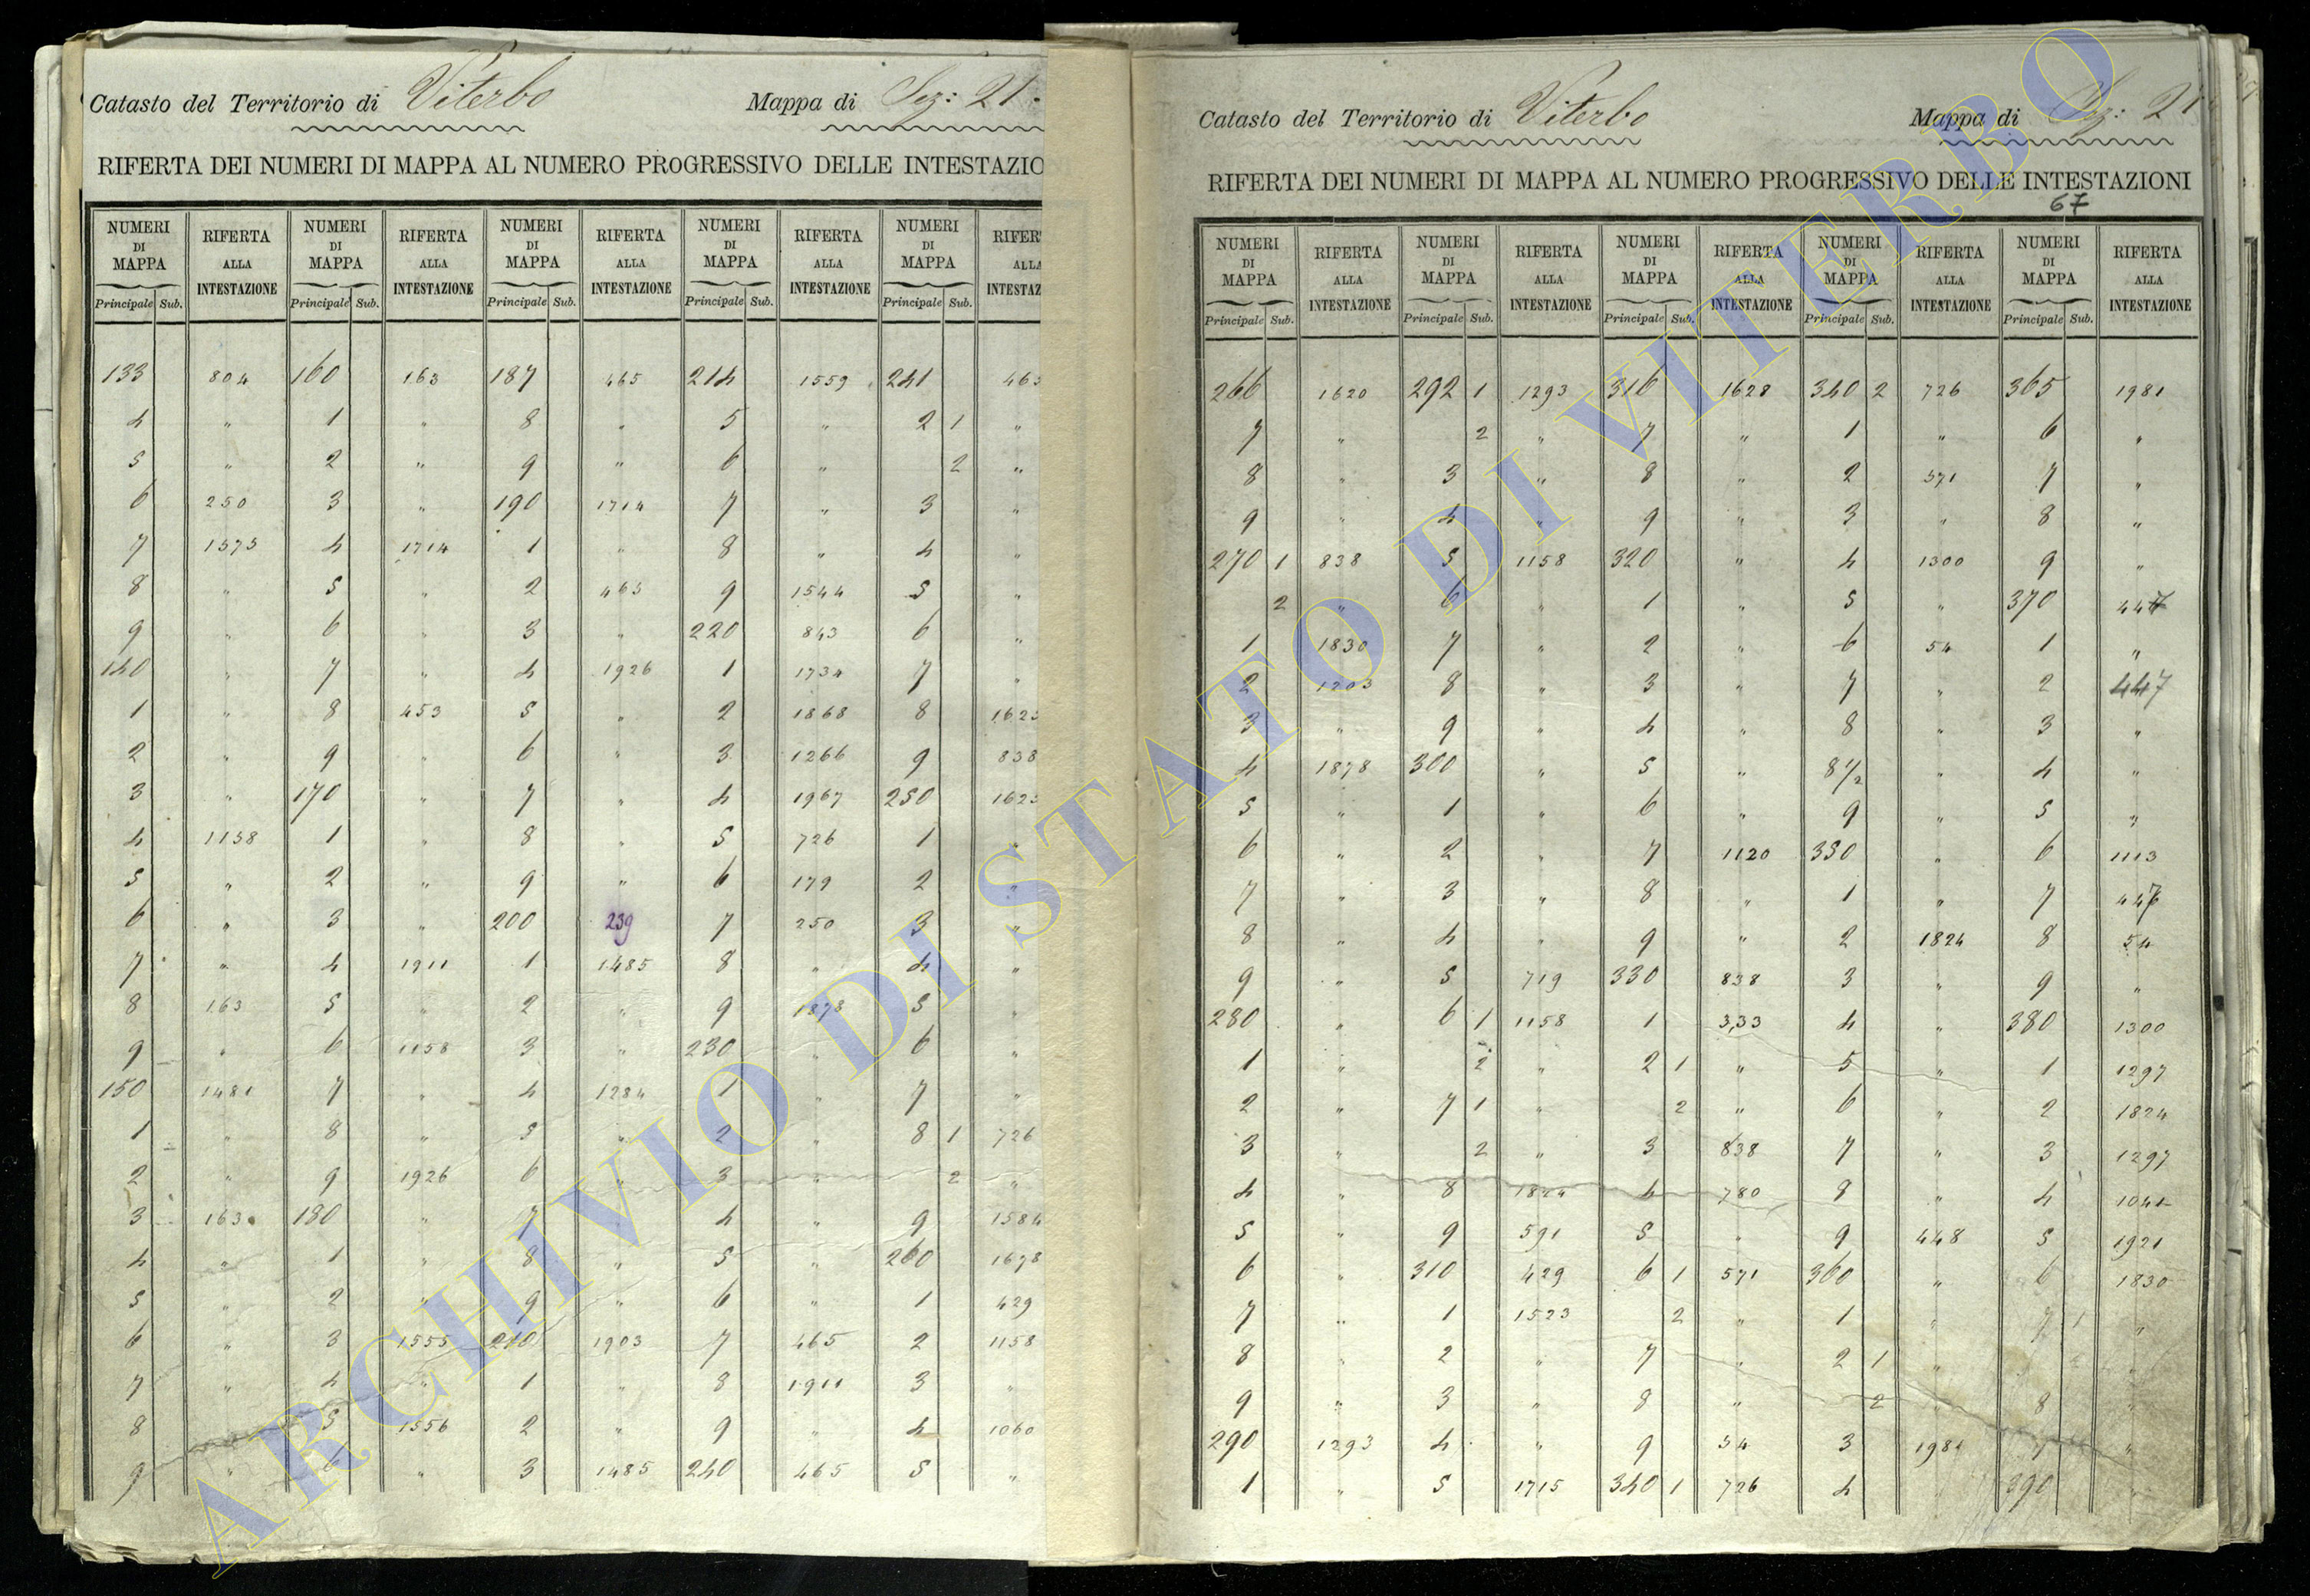 Catasto del Territorio di Viterbo Mappa di Sez: 21.
RIFERTA DEI NUMERI DI MAPPA AL NUMERO PROGRESSIVO DELLE INTESTAZIO
NUMERI DI MAPPA RIFERTA ALLA INTESTAZIONE NUMERI DI MAPPA RIFERTA ALLA INTESTAZIONE NUMERI DI MAPPA RIFERTA ALLA INTESTAZIONE NUMERI DI MAPPA RIFERTA ALLA INTESTAZIONE NUMERI DI MAPPA RIFER ALLA INTESTAZ
Principale Sub. Principale Sub. Principale Sub. Principale Sub. Principale Sub.
133 804 160 163 187 465 214 1559 241 465
4 " 1 " 8 " 5 " 2 1 "
5 " 2 " 9 " 6 " 2 "
6 250 3 " 190 1714 7 " 3 "
7 1575 4 1714 1 " 8 " 4 "
8 " 5 " 2 465 9 1544 5 "
9 " 6 " 3 " 220 843 6 "
140 " 7 " 4 1926 1 1734 7 "
1 " 8 453 5 " 2 1868 8 1623
2 " 9 " 6 " 3 1266 9 838
3 " 170 " 7 " 4 1967 250 1623
4 1158 1 " 8 " 5 726 1 "
5 " 2 " 9 " 6 179 2 "
6 " 3 " 200 239 7 250 3 "
7 " 4 1911 1 1485 8 " 4 "
8 163 5 " 2 " 9 1878 5 "
9 " 6 1158 3 " 230 " 6 "
150 1481 7 " 4 1284 1 " 7 "
1 " 8 " 5 " 2 " 8 1 726
2 " 9 1926 6 " 3 " 2 "
3 163 180 " 7 " 4 " 9 1584
4 " 1 " 8 " 5 " 260 1678
5 " 2 " 9 " 6 " 1 429
6 " 3 1555 210 1903 7 465 2 1158
7 " 4 " 1 " 8 1911 3 "
8 5 1556 2 " 9 " 4 1060
9 " 6 " 3 1485 240 465 5 "
Catasto del Territorio di Viterbo Mappa di Sez: 21
RIFERTA DEI NUMERI DI MAPPA AL NUMERO PROGRESSIVO DELLE INTESTAZIONI
67
NUMERI DI MAPPA RIFERTA ALLA INTESTAZIONE NUMERI DI MAPPA RIFERTA ALLA INTESTAZIONE NUMERI DI MAPPA RIFERTA ALLA INTESTAZIONE NUMERI DI MAPPA RIFERTA ALLA INTESTAZIONE NUMERI DI MAPPA RIFERTA ALLA INTESTAZIONE
Principale Sub. Principale Sub. Principale Sub. Principale Sub. Principale Sub.
266 1620 292 1 1293 316 1628 340 2 726 365 1981
7 " 2 " 7 " 1 " 6 "
8 " 3 " 8 " 2 571 7 "
9 " 4 " 9 " 3 " 8 "
270 1 838 5 1158 320 " 4 1300 9 "
2 " 6 " 1 " 5 " 370 447
1 1830 7 " 2 " 6 54 1 "
2 1203 8 " 3 " 7 " 2 447
3 " 9 " 4 " 8 " 3 "
4 1878 300 " 5 " 8 1/2 " 4 "
5 " 1 " 6 " 9 " 5 "
6 " 2 " 7 1120 350 " 6 1113
7 " 3 " 8 " 1 " 7 447
8 " 4 " 9 " 2 1824 8 54
9 " 5 719 330 838 3 " 9 "
280 " 6 1 1158 1 333 4 " 380 1300
1 " 2 " 2 1 " 5 " 1 1297
2 " 7 1 " 2 " 6 " 2 1824
3 " 2 " 3 838 7 " 3 1297
4 " 8 1824 4 780 8 " 4 1041
5 " 9 591 5 " 9 448 5 1921
6 " 310 429 6 1 571 360 " 6 1830
7 " 1 1523 2 " 1 " 7 1 "
8 " 2 " 7 " 2 1 " 2 "
9 " 3 " 8 " 2 " 8 "
290 1293 4 " 9 54 3 1981 9 "
1 " 5 1715 340 1 726 4 " 390 "
ARCHIVIO DI STATO DI VITERBO